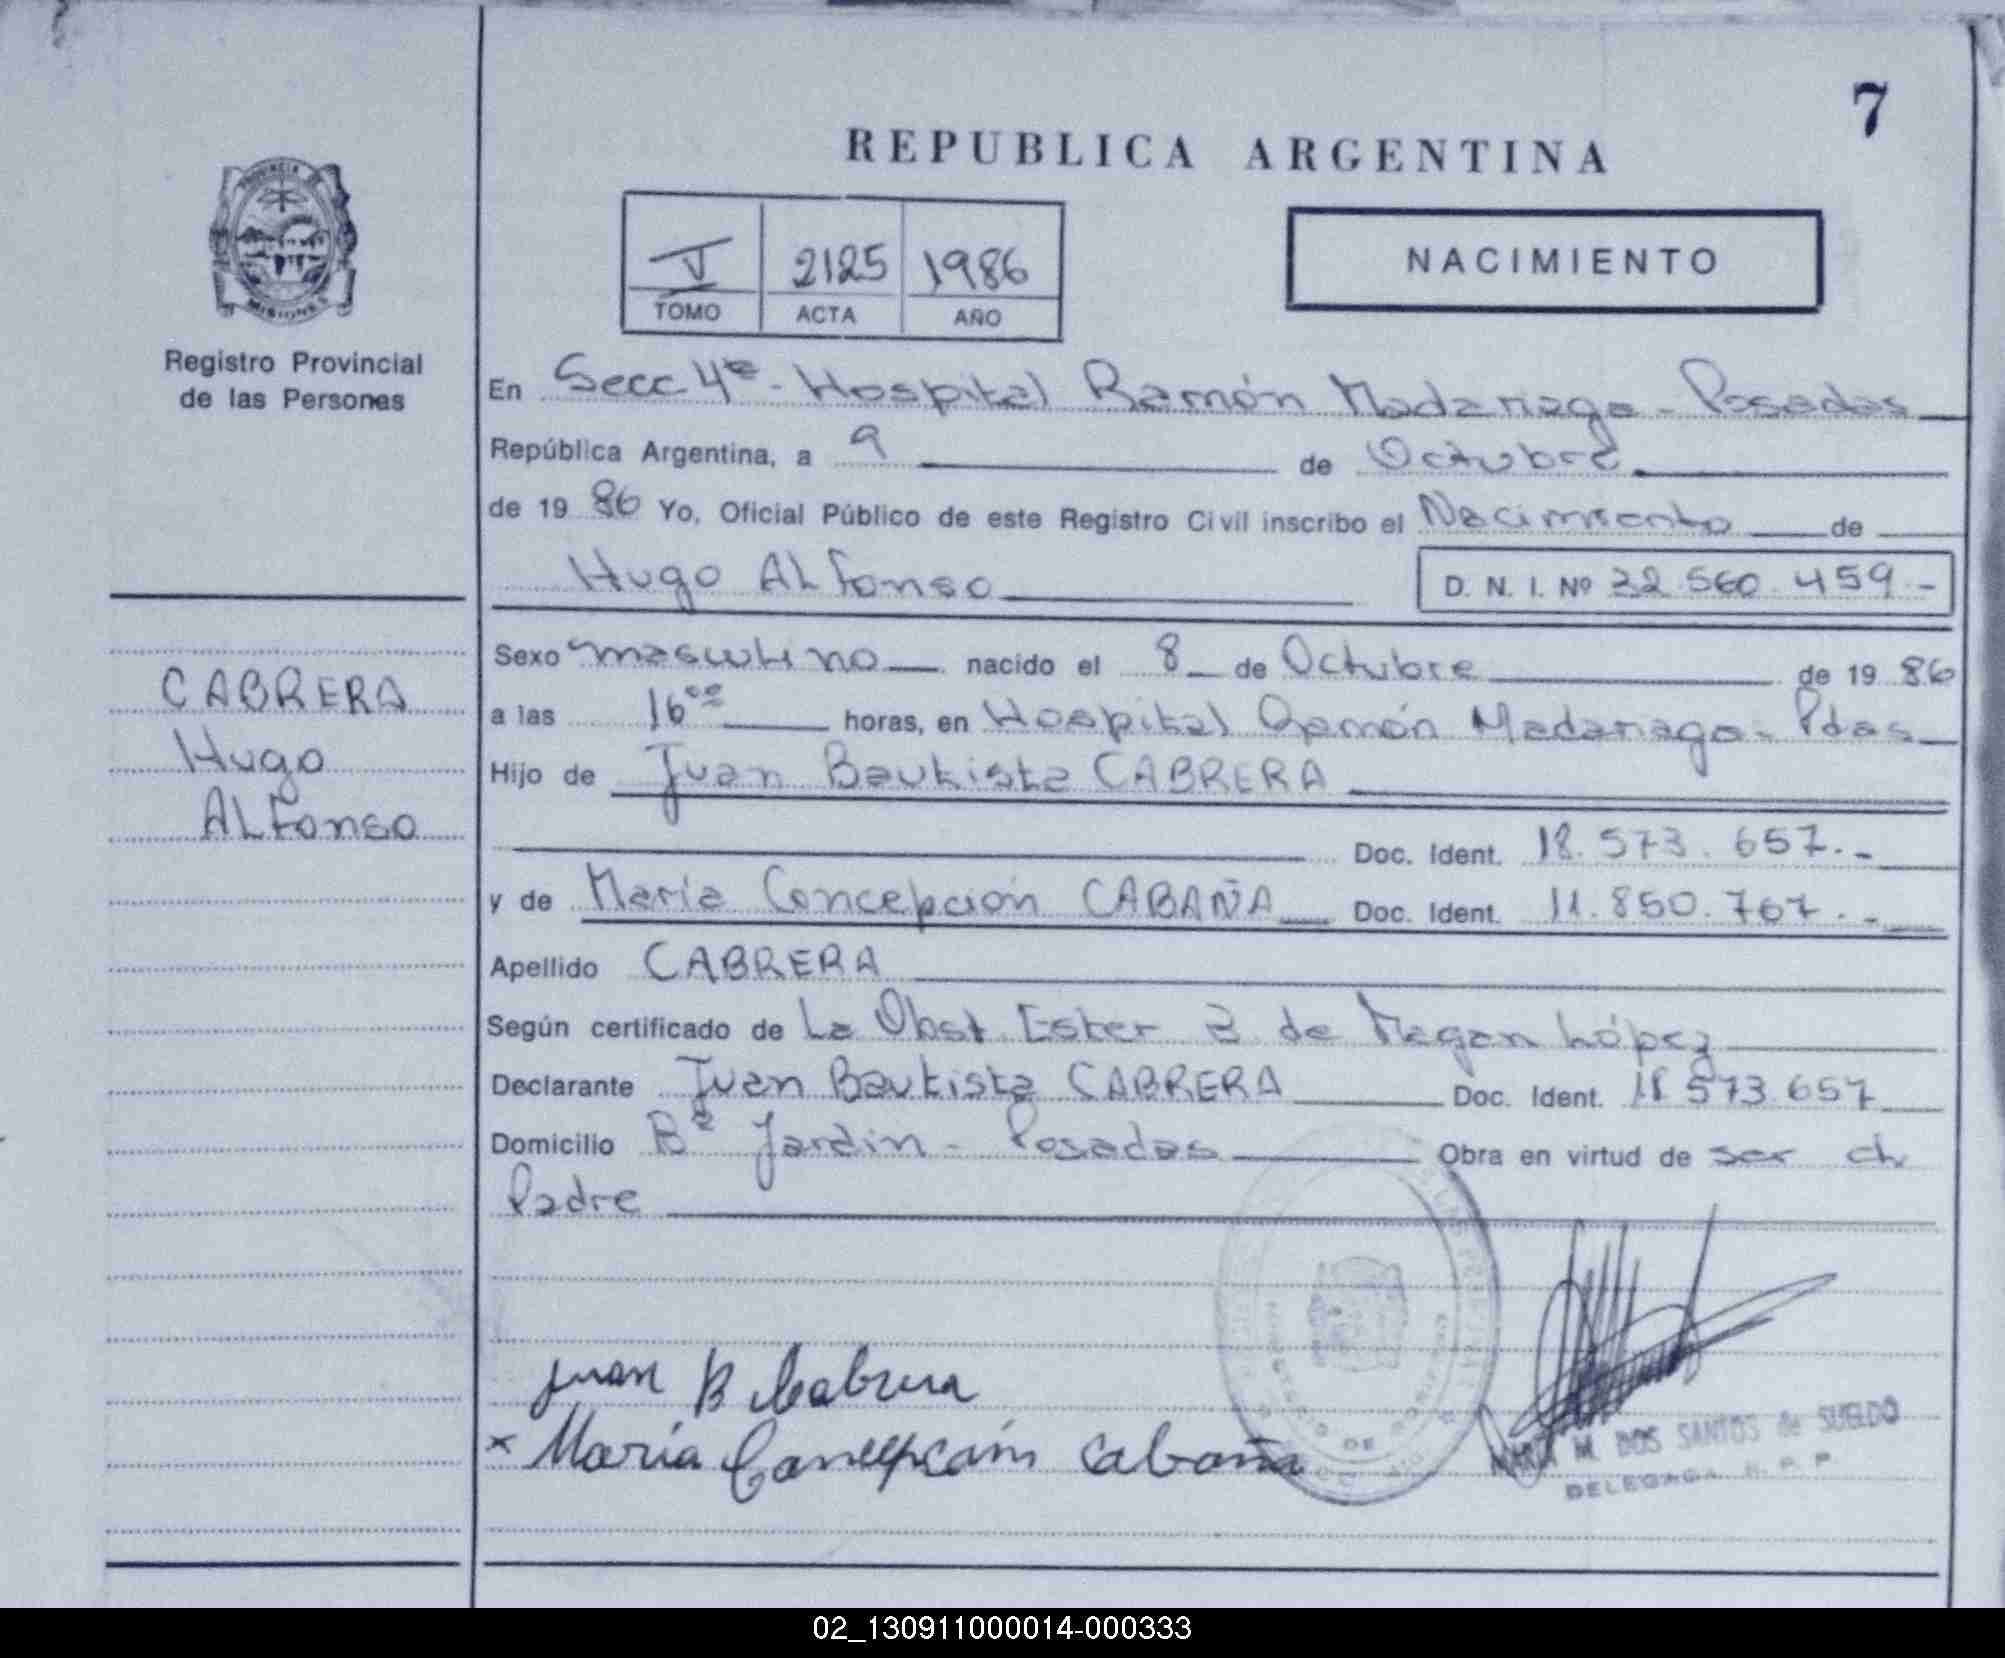 7
REPUBLICA ARGENTINA
PROVINCIA DE
MISIONES
Registro Provincial
de las Personas
V 2125 1986
TOMO ACTA AÑO
NACIMIENTO
En Secc 4ª - Hospital Ramón Madariaga - Posadas
República Argentina, a 9 de Octubre
de 19 86 Yo, Oficial Público de este Registro Civil inscribo el Nacimiento de
Hugo ALfonso D. N. I. Nº 32.560.459.-
CABRERA
Hugo
ALfonso
Sexo masculino nacido el 8 de Octubre de 19 86
a las 16 horas, en Hospital Ramón Madariaga - Pdas
Hijo de Juan Bautista CABRERA
Doc. Ident. 18.573.657.-
y de María Concepción CABAÑA Doc. Ident. 11.850.767.-
Apellido CABRERA
Según certificado de La Obst Ester de Magan López
Declarante Juan Bautista CABRERA Doc. Ident. 18 573.657
Domicilio Bº Jardin - Posadas Obra en virtud de ser el
Padre
Juan B Cabrera
x María Concepción Cabaña
MARIA M. DOS SANTOS de SUELDO
DELEGADA R. P. P.
02_130911000014-000333